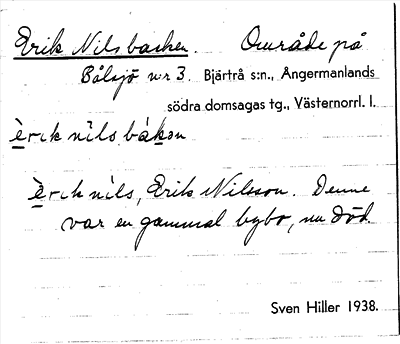 Erik Nilsbacken. Område på
Bålsjö nr 3. Bjärtrå s:n., Ångermanlands
södra domsagas tg., Västernorrl. l.
è̱rɩk nìls bák̠ən
è̱rɩk nìls, Erik Nilsson. Denne
var en gammal bybo, nu död.
Sven Hiller 1938.